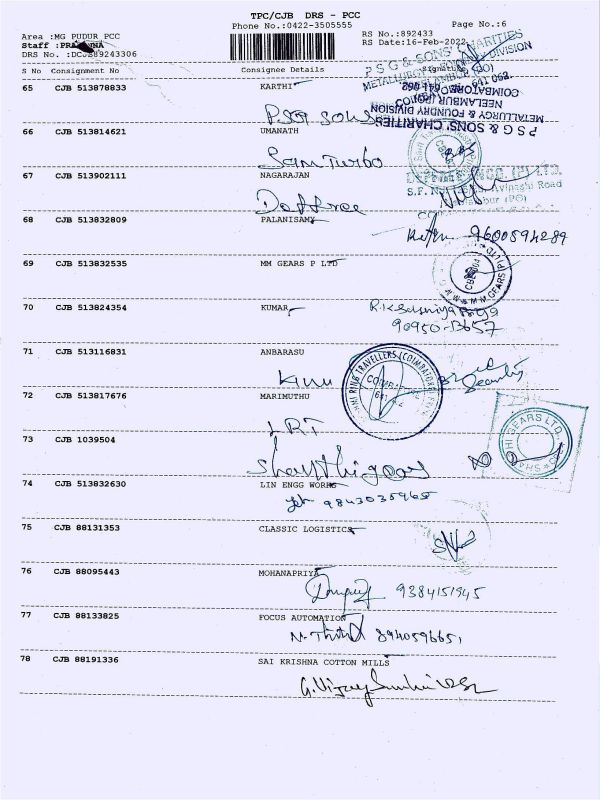 TPC/CJB DRS - PCC
Phone No.:0422-3505555
Page No.:6
Area :MG PUDUR PCC
Staff :
RS No.:892433
RS Date:16-Feb-2022
DRS No. :DCJB89243306
S No Consignment No Consignee Details
PSG & SONS' CHARITIES
METALLURGY & FOUNDRY DIVISION
NEELAMBUR (PO)
COIMBATORE
65 CJB 513878833 KARTHI
PSG SONS
66 CJB 513814621 UMANATH
Sam Turbo
67 CJB 513902111 NAGARAJAN
S.F. Avinashi Road
68 CJB 513832809 PALANISAMY
9600594289
69 CJB 513832535 MM GEARS P LTD
MM GEARS P LTD
70 CJB 513824354 KUMAR
90950-13657
71 CJB 513116831 ANBARASU
TRAVELLERS (COIMBATORE)
Security
72 CJB 513817676 MARIMUTHU
LRT
73 CJB 1039504
Shanthi gears
SHANTHI GEARS LTD.
74 CJB 513832630 LIN ENGG WORKS
9843035965
75 CJB 88131353 CLASSIC LOGISTICS
76 CJB 88095443 MOHANAPRIYA
9384151945
77 CJB 88133825 FOCUS AUTOMATION
8940596651
78 CJB 88191336 SAI KRISHNA COTTON MILLS